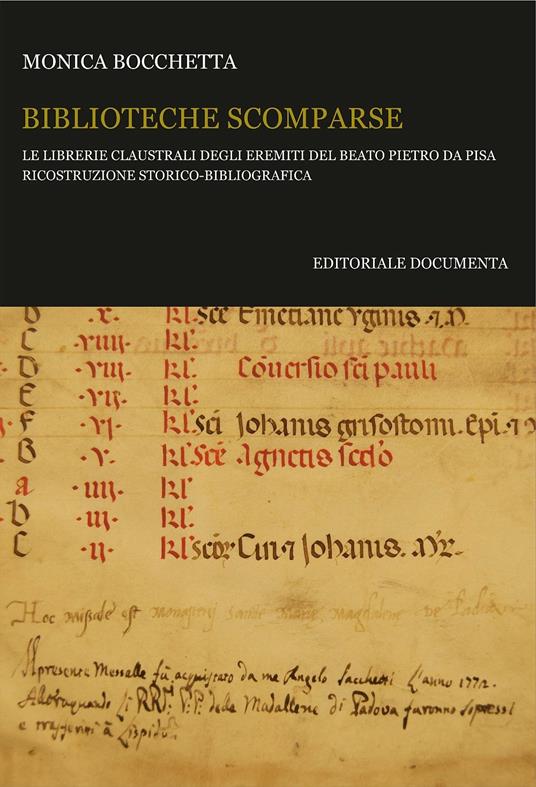 MONICA BOCCHETTA
BIBLIOTECHE SCOMPARSE
LE LIBRERIE CLAUSTRALI DEGLI EREMITI DEL BEATO PIETRO DA PISA
RICOSTRUZIONE STORICO-BIBLIOGRAFICA
EDITORIALE DOCUMENTA
b .x. kl' Sce Emerciane Vginis
C .viiij. kl'
D .viij. kl' Conversio sci pauli
E .vij. kl'
F .vj. kl' Sci Johanis grisostomi. Epi.
B .v. kl' Sce Agnetis scdo
a .iiij. kl'
b .iij. kl'
C .ij. kl' Johanis.
Hoc missale est monasterij sancte marie magdalene de Padua
Il presente Messalle fù acquistato da me Angelo Sacchetti L'anno 1772.
li RR: P.P. delle Madallene di Padova furonno sopressi
e trasferiti à